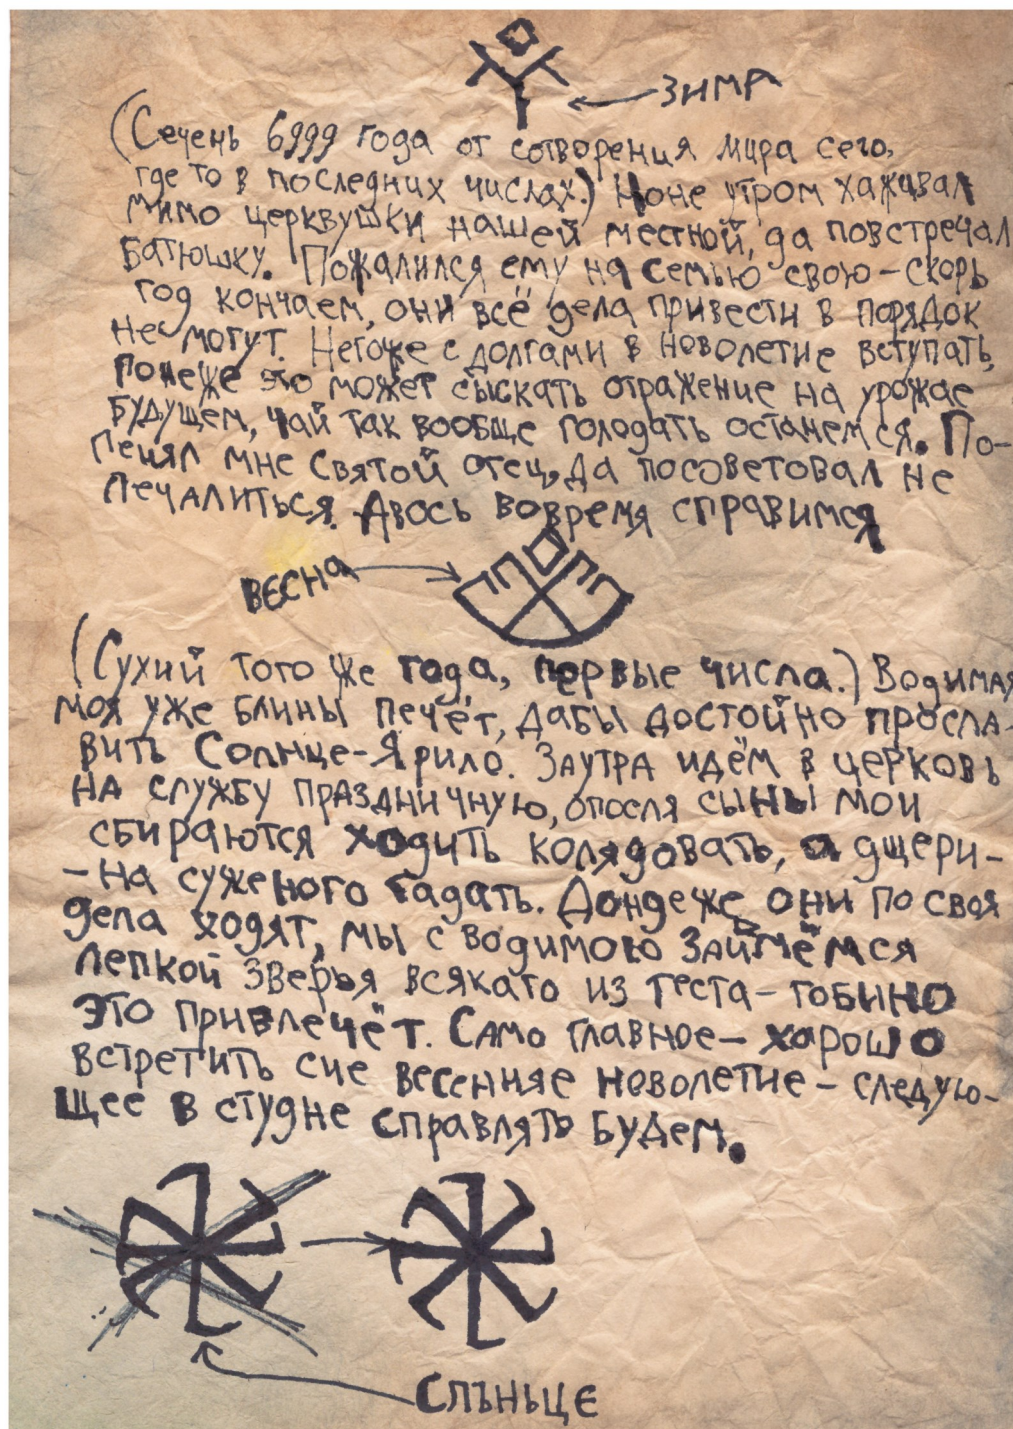 ЗИМА
(Сечень 6999 года от сотворения мира сего,
где то в последних числах.) Ноне утром хаживал
мимо церквушки нашей местной, да повстречал
батюшку. Пожалился ему на семью свою – скорь
год кончаем, они всё дела привести в порядок
не могут. Негоже с долгами в новолетие вступать,
понеже это может сыскать отражение на урожае
будущем, чай так вообще голодать останемся. По-
пенял мне святой отец, да посоветовал не
печалиться. Авось вовремя справимся
ВЕСНА
(Сухий того же года, первые числа.) Водимая
моя уже блины печёт, дабы достойно просла-
вить Солнце-Ярило. Заутра идём в церковь
на службу праздничную, опосля сыны мои
сбираются ходить колядовать, а дщери –
– на суженого гадать. Дондеже они по своя
дела ходят, мы с водимою займёмся
лепкой зверья всякаго из теста – гобино
это привлечёт. Само главное – хорошо
встретить сие весенняе новолетие – следую-
щее в студне справлять будем.
Слъньце